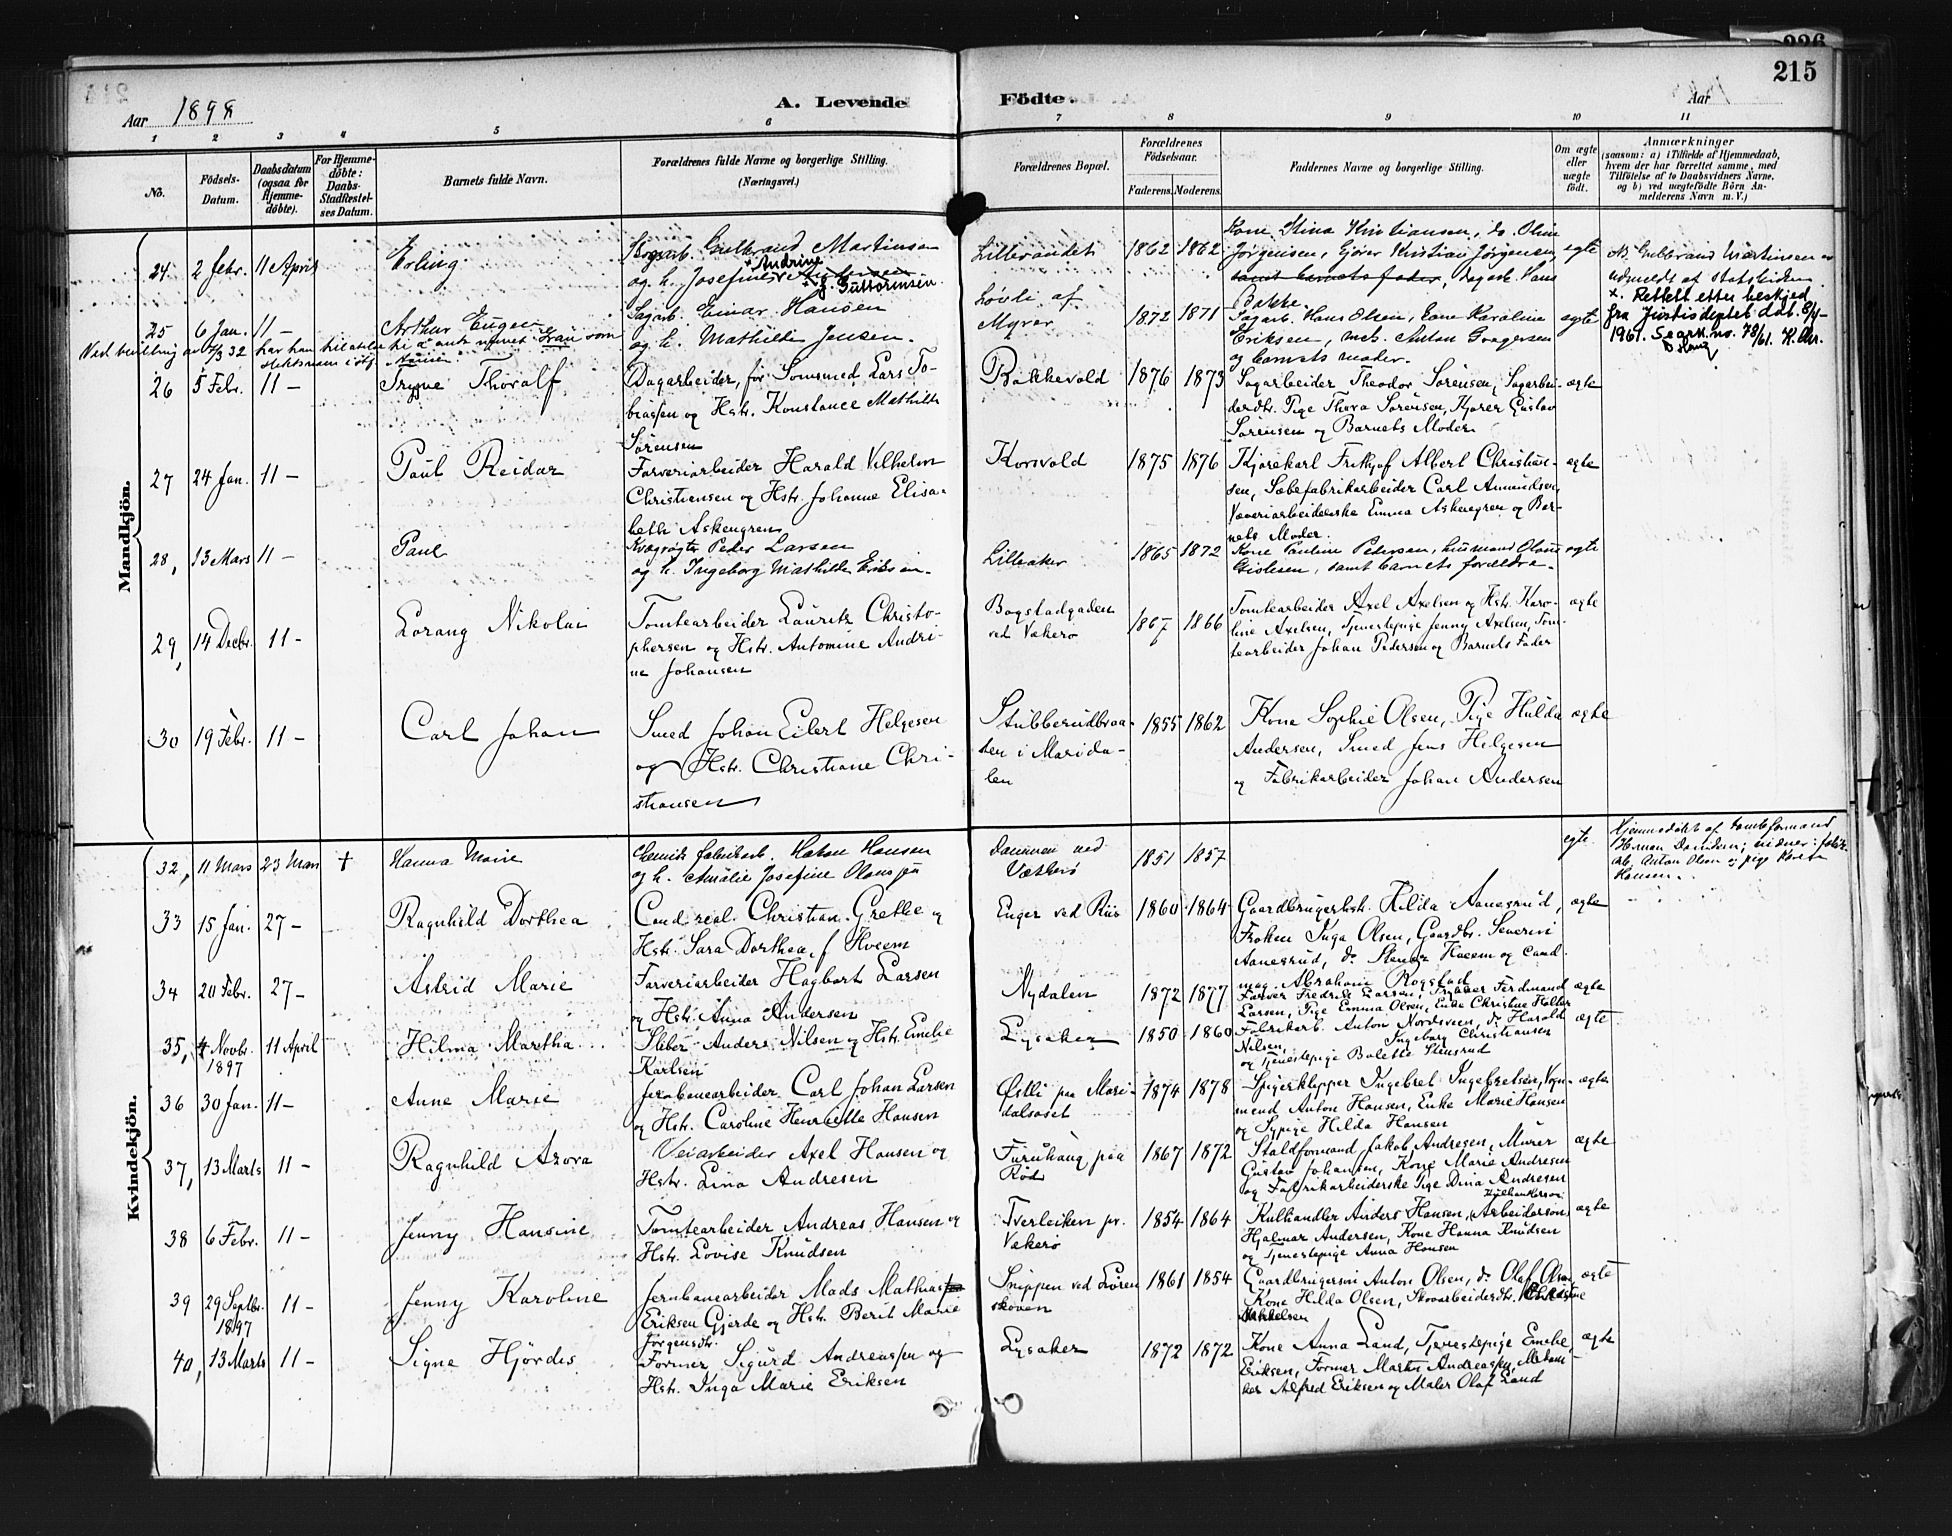 215
Aar 1898
A. Levende Födte.
Aar
1 2 3 4 5 6 7 8 9 10 11
No.
Födsels-Datum.
Daabsdatum (ogsaa for Hjemme-döbte).
For Hjemme-döbte: Daabs-Stadfæstel-ses Datum.
Barnets fulde Navn.
Forældrenes fulde Navne og borgerlige Stilling. (Næringsvei.)
Forældrenes Bopæl.
Forældrenes Födselsaar.
Faderens. Moderens.
Faddernes Navne og borgerlige Stilling.
Om ægte eller uægte födt.
Anmærkninger (saasom: a) i Tilfælde af Hjemmedaab, hvem der har forrettet samme, med Tilföielse af to Daabsvidners Navne, og b) ved uægtefödte Börn Anmelderens Navn m. V.)
Mandkjön.
24 2 febr. 11 April Erling
Gulbrand Martinsen
og h. Josefine Andrine
Guttormsen
Lillerandet 1862 1862
Kone Stina Kristiansen, do. Oline
Jørgensen, Gjører Kristian Jørgensen,
samt barnets fader, Hans
Bakke.
egte
Gulbrand Martinsen
udmeldt af statskirken
x. Rettett etter beskjed
fra Justisdeptet dat. 8/4-
1961. Se ark.no. 78/61. K. Chr.
25 6 Jan. 11 – Arthur Eugen
Sagarb. Einar Hansen
og h. Mathilde Jensen.
Løvli af
Myrer
1872 1871
Sagarb. Hans Olsen, Kone Karoline
Eriksen, Anton Gregersen
og barnets moder.
egte
26 5 Febr. 11 – Trygve Thoralf
Dagarbeider, før Tomsmed Lars To-
biassen og Hstr. Konstance Mathilde
Sørensen
Bakkevold 1876 1873
Sagarbeider Theodor Sørensen, Sagarbei-
derdtr. Pige Thora Sørensen, Kjører Gustav
Sørensen og Barnets Moder
ægte
27 24 Jan. 11 – Paul Reidar
Farveriarbeider Harald Vilhelm
Christiansen og Hstr. Johanne Elisa-
beth Askengren
Korsvold 1875 1876
Kjørekarl Frithjof Albert Christian-
sen, Sæbefabrikarbeider Carl Amundsen,
Væveriarbeiderske Emma Askengren og Bar-
nets Moder.
ægte
28, 13 Mars 11 – Paul
Kvægrøgter Peder Larsen
og h. Ingeborg Mathilde Eriksen.
Lilleaker 1865 1872
Kone Pauline Petersen, husmand Olaus
samt barnets forældre.
egte
29, 14 Decbr. 11 – Lorang Nikolai
Tomtearbeider Lauritz Christo-
phersen og Hstr. Antomine Andri-
ne Johansen
Bogstadgaden
ved Vakerø
1867 1866
Tomtearbeider Axel Axelsen og Hstr. Karo-
line Axelsen, Tjenestepige Jenny Axelsen, Tom-
tearbeider Johan Pedersen og Barnets Fader
ægte
30 19 Febr. 11 – Carl Johan
Smed Johan Eilert Helgesen
og Hstr. Christiane Chri-
stiansen
Stubberudbraa-
ten i Marida-
len
1855 1862
Kone Sophie Olsen, Pige Hulda
Andersen, Smed Jens Helgesen
og Fabrikarbeider Johan Andersen
ægte
Kvindekjön.
32, 11 Mars 23 Mars † Hanna Marie
Chemisk fabrikarb. Hakon Hansen
og h. Amalie Josefine
ved
1851 1857
egte
Hjemmedøbt af tomteformand
Herman Davidsen; vidner: fabrik-
arb. Anton Olsen og pige Karen
Hansen.
33 15 Jan. 27 – Ragnhild Dorthea
Cand. real. Christian Grette og
Hstr. Sara Dorthea f Hveem
Enger ved Riis 1860 1864
Gaardbrugerhstr. Hilda Aanesrud,
Frøken Inga Olsen, Gaardbr. Severin
Aanesrud, do. Stener Hveem og Cand.
mag. Abraham Rogstad
ægte
34 20 Febr. 27 – Astrid Marie
Farveriarbeider Hagbart Larsen
og Hstr. Anna Andersen
Nydalen 1872 1877
Farver Fredrik Larsen, Trykker Ferdinand
Larsen, Pige Emma Olsen, Enke Christine Holter
ægte
35, 4 Novbr. 1897 11 April Hilma Martha
Sliber Anders Nilsen og Hstr. Emelie
Karlsen
Lysaker 1850 1860
Fabrikarb. Anton Nordsveen, do. Harald
Nilsen, Ingeborg Christiansen
og Tjenestepige Bolette Stensrud
ægte
36 30 Jan. 11 – Anne Marie
Jernbanearbeider Carl Johan Larsen
og Hstr. Caroline Henriette Hansen
Østli paa Mari-
dalsoset
1874 1878
Spigerklipper Ingebret Ingebretsen, Vogn-
mand Anton Hansen, Enke Marie Hansen
og Sypige Hilda Hansen
ægte
37, 13 Marts 11 – Ragnhild Azora
Veiarbeider Axel Hansen og
Hstr. Lina Andresen
Furuhaug paa
Røds
1867 1872
Staldformand Jakob Andresen, Murer
Gustav Johansen, Kone Marie Andresen
og Fabrikarbeiderske Pige Dina Andresen
ægte
38 6 Febr. 11 – Jenny Hansine
Tomtearbeider Andreas Hansen og
Hstr. Lovise Knudsen
Tverleiken pr.
Vækerø
1854 1864
Kulhandler Anders Hansen, (Arbeidersøn)
Hjalmar Andersen, Kone Hanna Knudsen
og Tjenestepige Anna Hansen
ægte
39 29 Septbr. 1897 11 – Jenny Karoline
Jernbanearbeider Mads Mathias
Eriksen Gjerde og Hstr. Berit Marie
Jörgensdtr.
Snippen ved Løren
skoven
1861 1854
Gaardbrugersøn Anton Olsen, do. Olaf Olsen,
Kone Hilda Olsen, Skovarbeiderdtr.
ægte
40, 13 Marts 11 – Signe Hjördis
Former Sigurd Andreassen og
Hstr. Inga Marie Eriksen
Lysaker 1872 1872
Kone Anna Land, Tjenestepige Emelie
Eriksen, Former Martin Andreassen, Mekani-
ker Alfred Eriksen og Maler Olaf Land
ægte